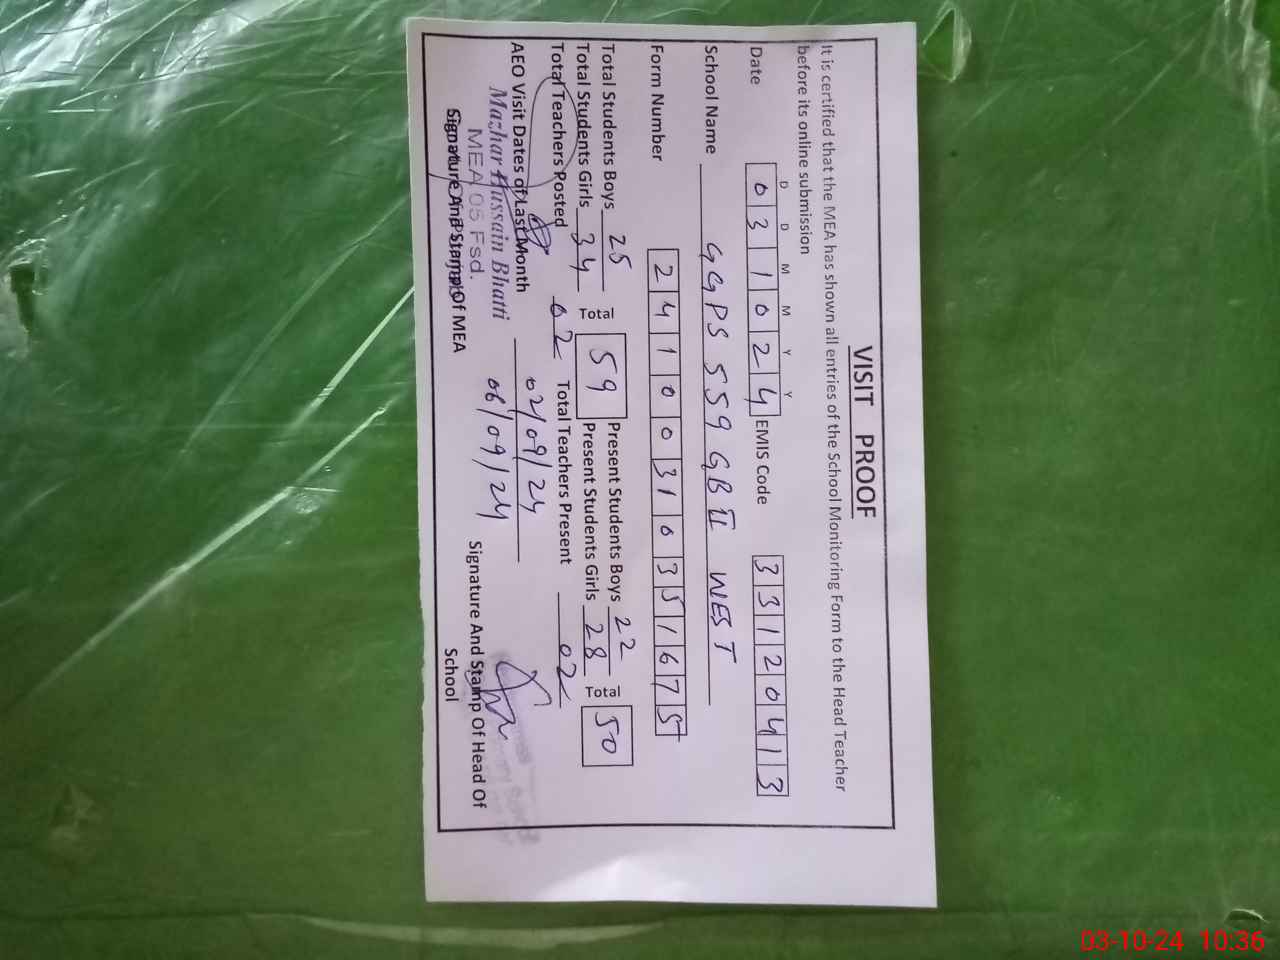 VISIT PROOF
It is certified that the MEA has shown all entries of the School Monitoring Form to the Head Teacher
before its online submission
D D M M Y Y
Date 0 3 1 0 2 4 EMIS Code 3 3 1 2 0 4 1 3
School Name GGPS 559 GB II WEST
Form Number 2 4 1 0 0 3 1 0 3 5 1 6 7 5
Total Students Boys 25 Total 59 Present Students Boys 22 Total 50
Total Students Girls 34 Present Students Girls 28
Total Teachers Posted 02 Total Teachers Present 02
AEO Visit Dates of Last Month 02/09/24
06/09/24
Mazhar Hussain Bhatti
MEA 05 Fsd.
Signature And Stamp Of MEA
Signature And Stamp Of Head Of
School
03-10-24 10:36